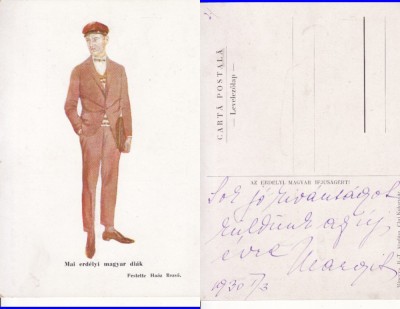 Mai erdélyi magyar diák
Festette Huia Rezső.
CARTĂ POSTALĂ
— Levelezőlap —
AZ ERDÉLYI MAGYAR IFJUSÁGÉRT!
Sok jó kivánságot
küldünk az új
évre Margit
1930 I/3